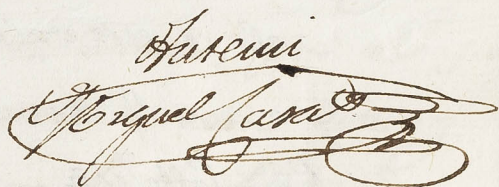 Ante mi
Miguel Casa